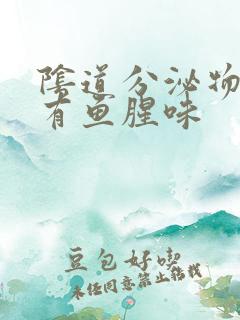 陰道分泌物
有鱼腥味
豆包好喫
未经同意禁止转载